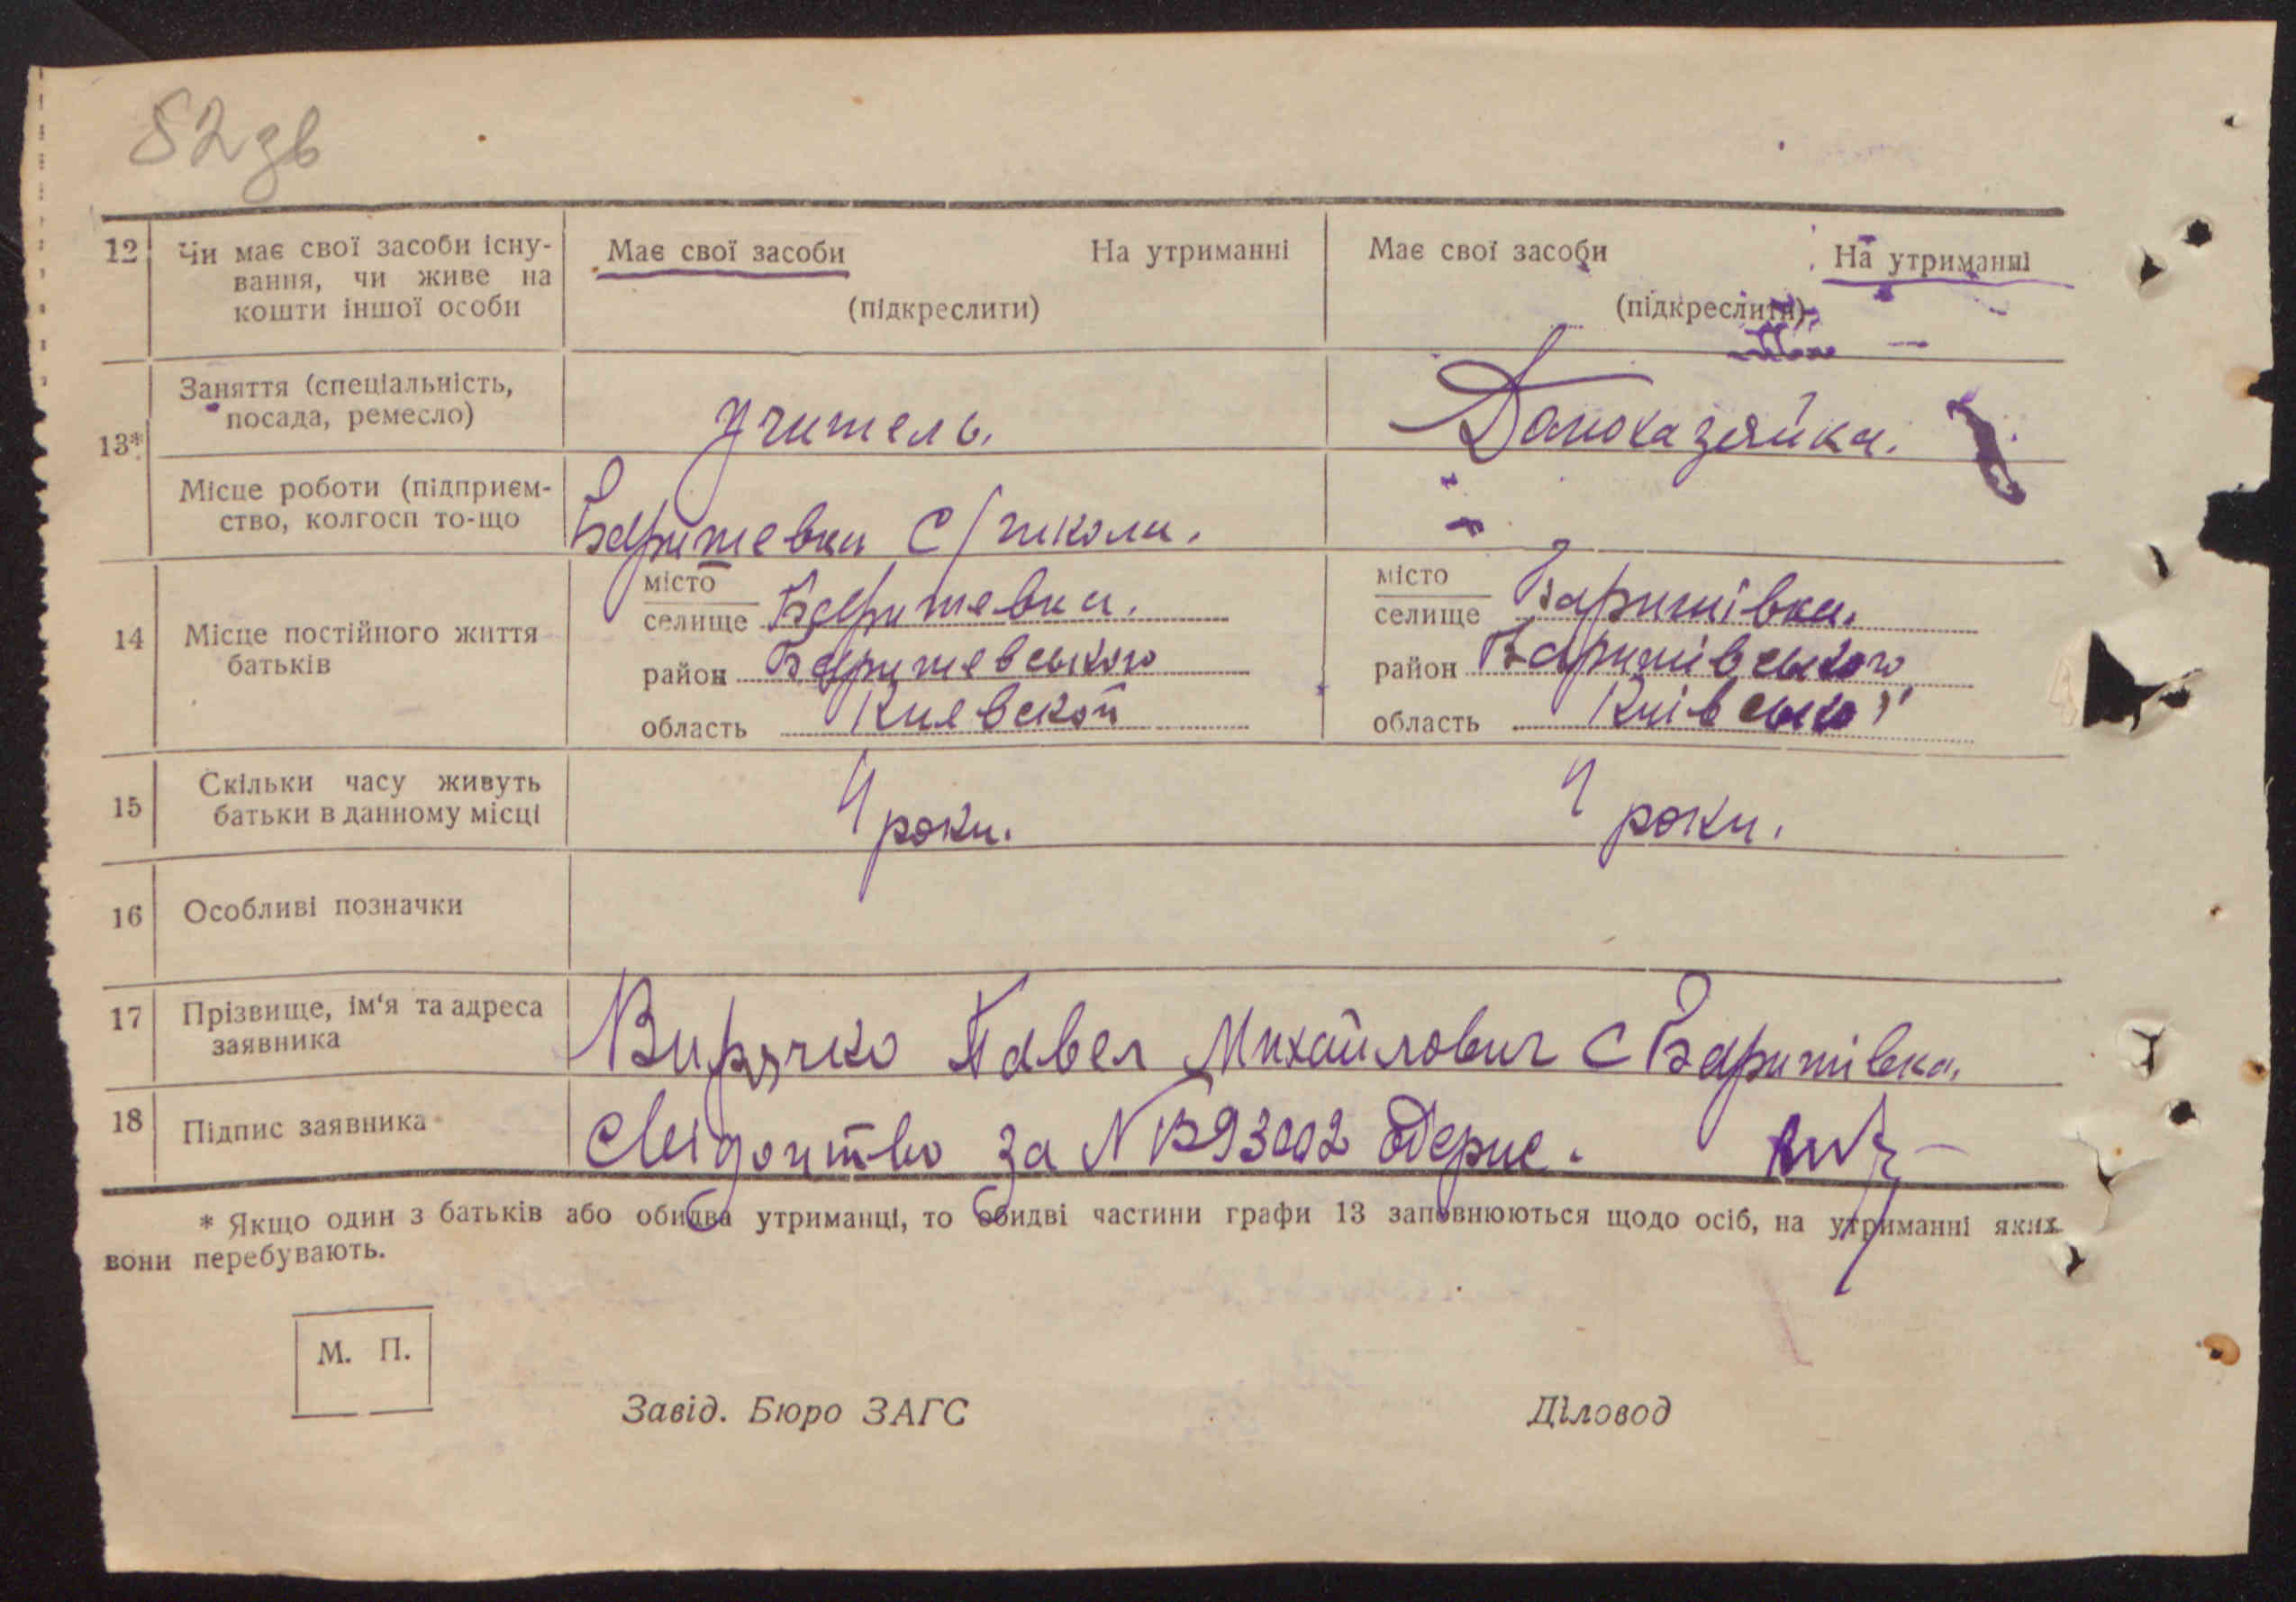 82зв
12 Чи має свої засоби існу-
вання, чи живе на
кошти іншої особи
Має свої засоби На утриманні
(підкреслити)
Має свої засоби На утриманні
(підкреслити)
13*
Заняття (спеціальність,
посада, ремесло)
Учитель. Домохазяйка.
Місце роботи (підприєм-
ство, колгосп то-що
Баришевка С/школи.
14 Місце постійного життя
батьків
місто
селище Баришевка.
район Баришевського
область Киевской
місто
селище Баришівка.
район Баришівського
область Київської
15 Скільки часу живуть
батьки в данному місці
4 роки. 4 роки.
16 Особливі позначки
17 Прізвище, ім'я та адреса
заявника
Павел Михайлович С Баришівка.
18 Підпис заявника
за N
* Якщо один з батьків або обидва утриманці, то обидві частини графи 13 заповнюються щодо осіб, на утриманні яких
вони перебувають.
М. П.
Завід. Бюро ЗАГС Діловод